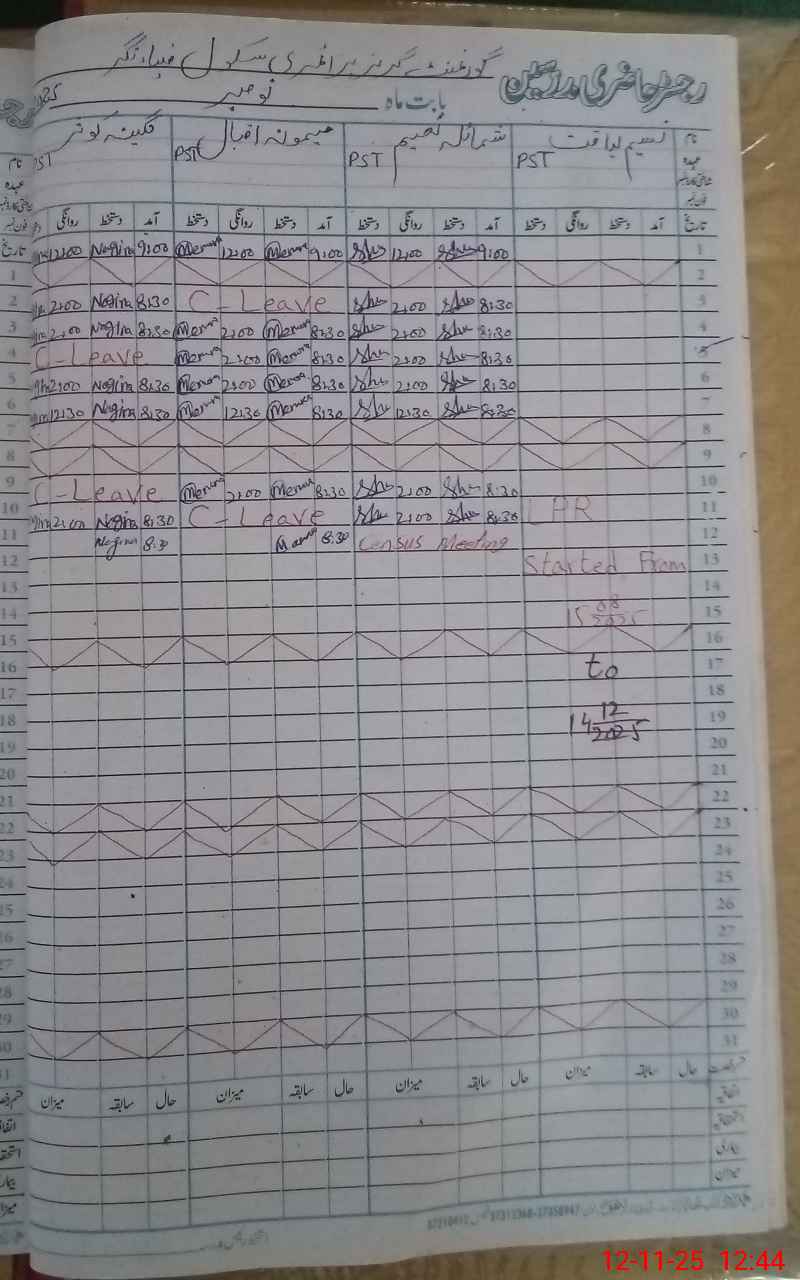 رجسٹر حاضری مدرسین گورنمنٹ گرلز پرائمری سکول ضیاء نگر
بابت ماہ نومبر
نام نسیم لیاقت شمائلہ نسیم میمونہ اقبال نگینہ کوثر
عہدہ PST PST PST PST
تاریخ آمد دستخط روانگی دستخط آمد دستخط روانگی دستخط آمد دستخط روانگی دستخط آمد دستخط روانگی
1 9:00 Shu 12:00 Shu 9:00 Memona 12:00 Memona 9:00 Nagina 12:00
2
3 8:30 Shu 2:00 Shu C-Leave 8:30 Nagina 2:00
4 8:30 Shu 2:00 Shu 8:30 Memona 2:00 Memona 8:30 Nagina 2:00
5 8:30 Shu 2:00 Shu 8:30 Memona 2:00 Memona C-Leave
6 8:30 Shu 2:00 Shu 8:30 Memona 2:00 Memona 8:30 Nagina 2:00
7 8:30 Shu 12:30 Shu 8:30 Memona 12:30 Memona 8:30 Nagina 12:30
8
9
10 8:30 Shu 2:00 Shu 8:30 Memona 2:00 Memona C-Leave
11 LPR 8:30 Shu 2:00 Shu C-Leave 8:30 Nagina 2:00
12 Census Meeting 8:30 8:30 Nagina
13 Started From
14
15 15 08 2025
16
17 to
18
19 14 12 2025
20
21
22
23
24
25
26
27
28
29
30
31
حال سابقہ میزان حال سابقہ میزان حال سابقہ میزان حال سابقہ میزان
اتفاقیہ
استحقاقیہ
بیماری
میزان
12-11-25 12:44